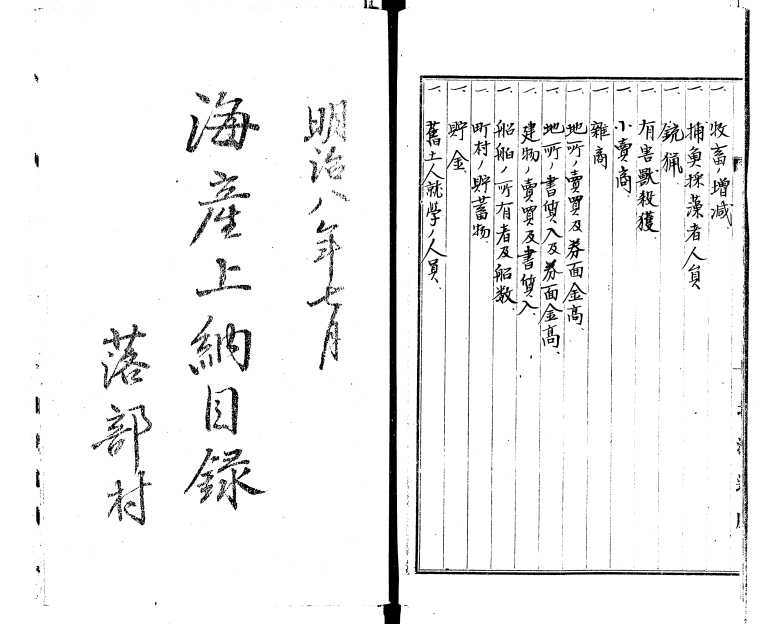 一、牧畜ノ増減、
一、捕魚採藻者人負
一、銃猟、
一、有害獸殺獲、
一、小賣商、
一、雜商
一、地所ノ賣買及券面金高、
一、地所ノ書質入及券面金高、
一、建物ノ賣買及書質入、
一、船舶ノ所有者及船数、
一、町村ノ貯蓄物、
一、貯金、
一、舊土人就學ノ人員、
明治八年七月
海産上納目録
落部村